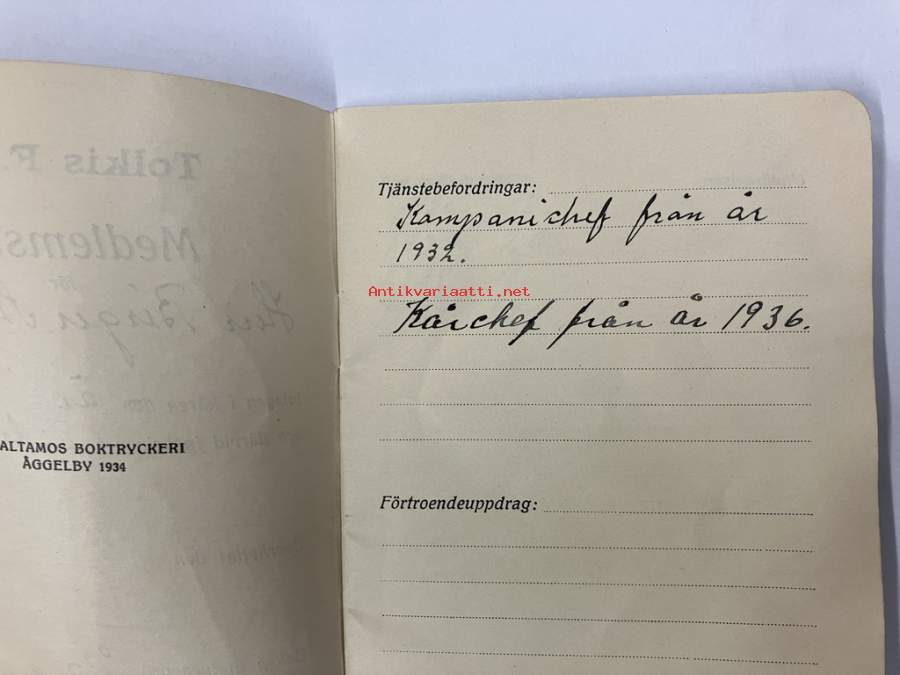 Tolkis F.
Medlems
ALTAMOS BOKTRYCKERI
ÅGGELBY 1934
Tjänstebefordringar:
Kompanichef från år
1932.
Antikvariaatti.net
Kårchef från år 1936.
Förtroendeuppdrag: